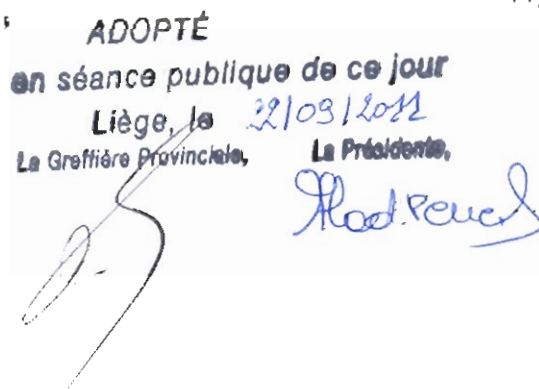 ADOPTÉ
en séance publique de ce jour
Liège, le 22/09/2011
La Greffière Provinciale, La Présidente,